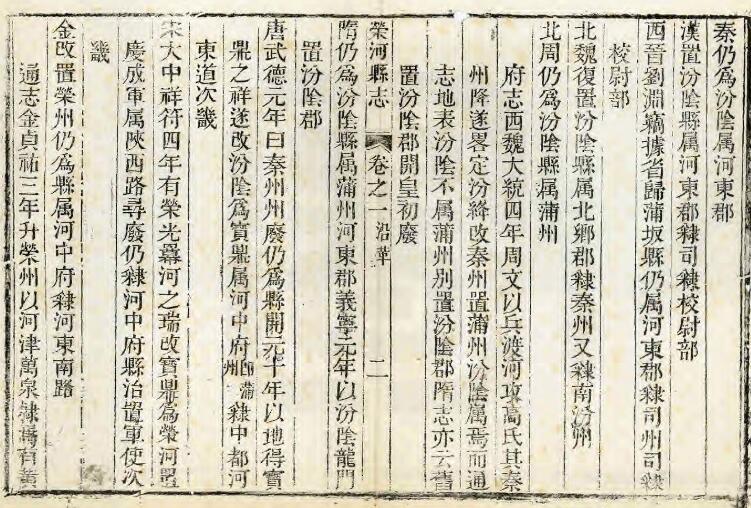 秦仍為汾陰属河東郡
漢置汾陰縣属河東郡隸司隸校尉部
西晉劉淵竊據省歸蒲坂縣仍属河東郡隸司州司隸
校尉部
北魏復置汾陰縣属北鄉郡隸秦州又隸南汾州
北周仍為汾陰縣属蒲州
府志西魏大統四年周文以兵渡河攻高氏其秦
州降遂畧定汾絳改秦州置蒲州汾陰属焉而通
志地表汾陰不属蒲州别置汾陰郡隋志亦云舊
置汾陰郡開皇初廢
榮河縣志 卷之一沿革 二
隋仍為汾陰縣属蒲州河東郡義寧元年以汾陰龍門
置汾陰郡
唐武德元年曰秦州州廢仍為縣開元十年以地得寶
鼎之祥遂改汾陰為寶鼎属河中府即蒲州隸中都河
東道次畿
宋大中祥符四年有榮光羃河之瑞改寶鼎為榮河置
慶成軍属陜西路尋廢仍隸河中府縣治置軍使次
畿
金改置榮州仍為縣属河中府隸河東南路
通志金貞祐三年升榮州以河津萬泉隸焉有黄